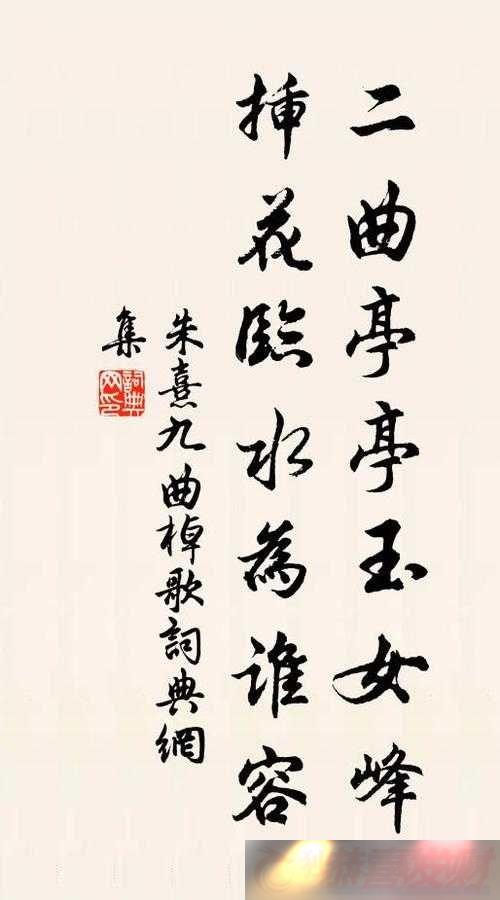 二曲亭亭玉女峰
挿花臨水為誰容
朱熹九曲棹歌詞典網
集
詞典
网印